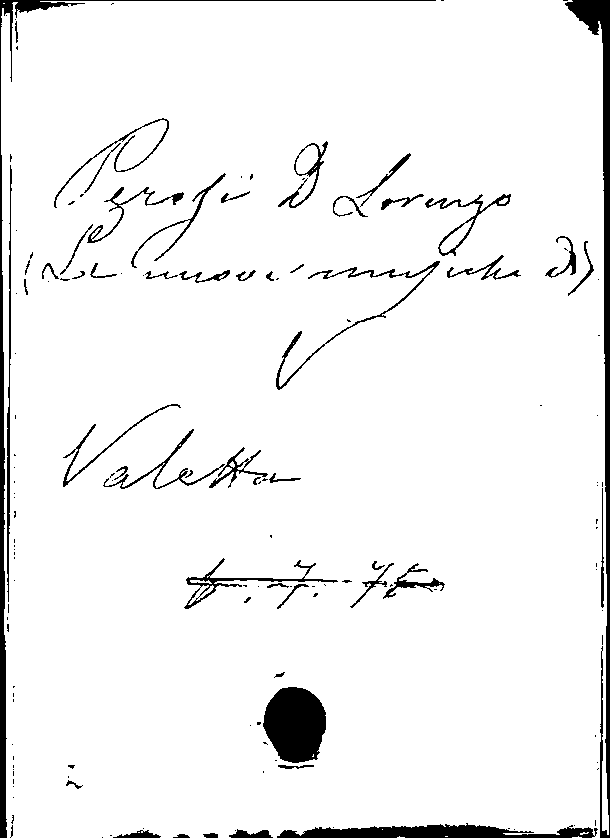 Perosi D Lorenzo
(Le nuove musiche di)
V
Valetta
f. 7. 75